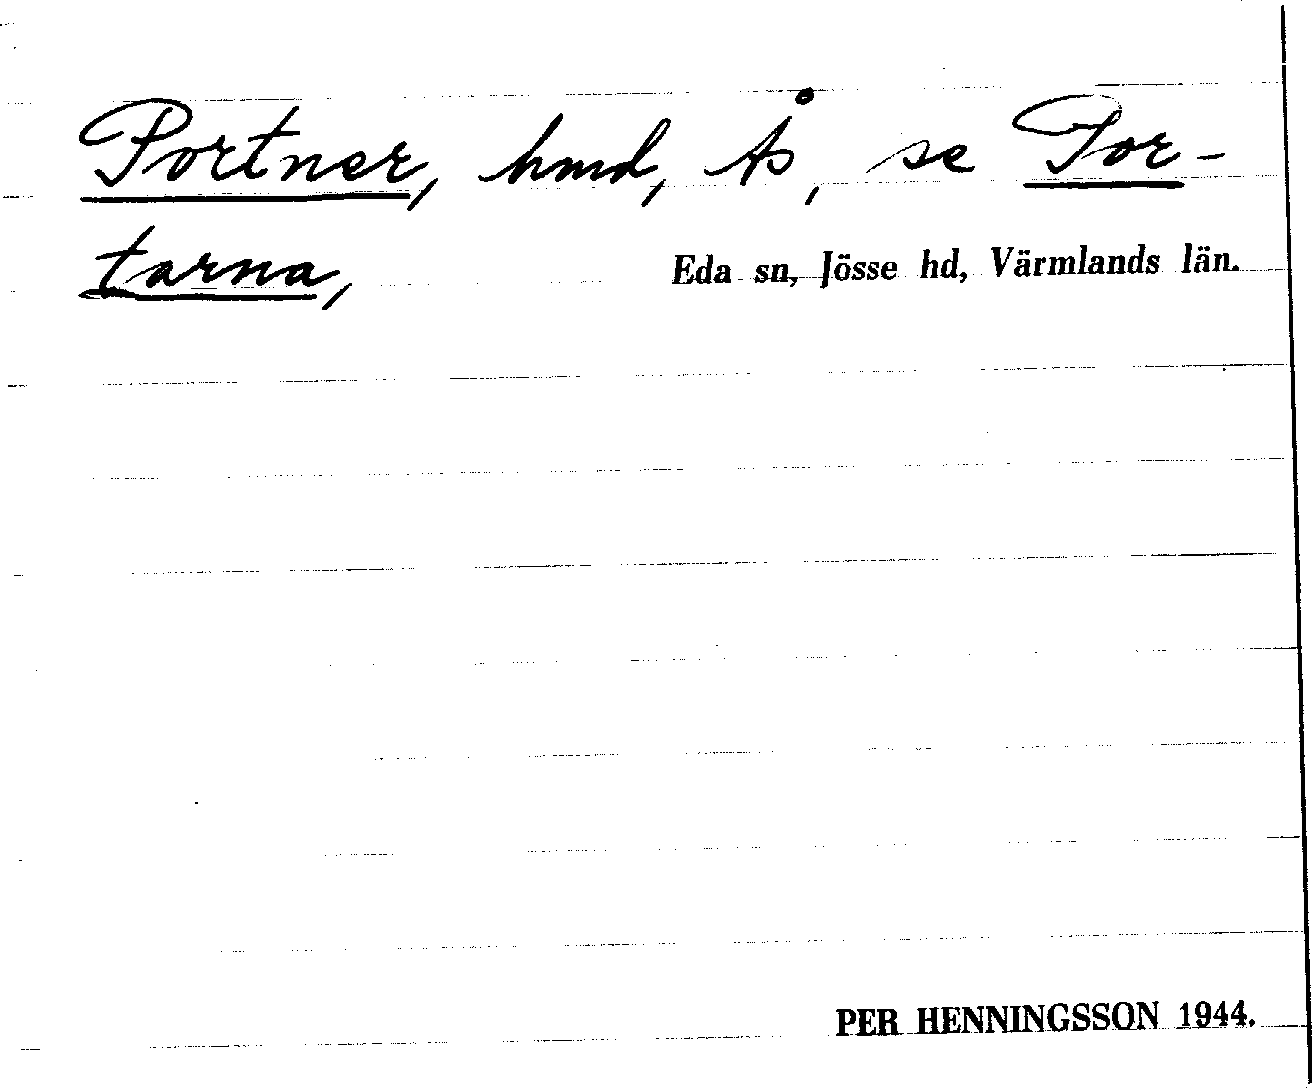 Portner, hmd, Ås, se Por-
tarna, Eda sn, Jösse hd, Värmlands län.
PER HENNINGSSON 1944.